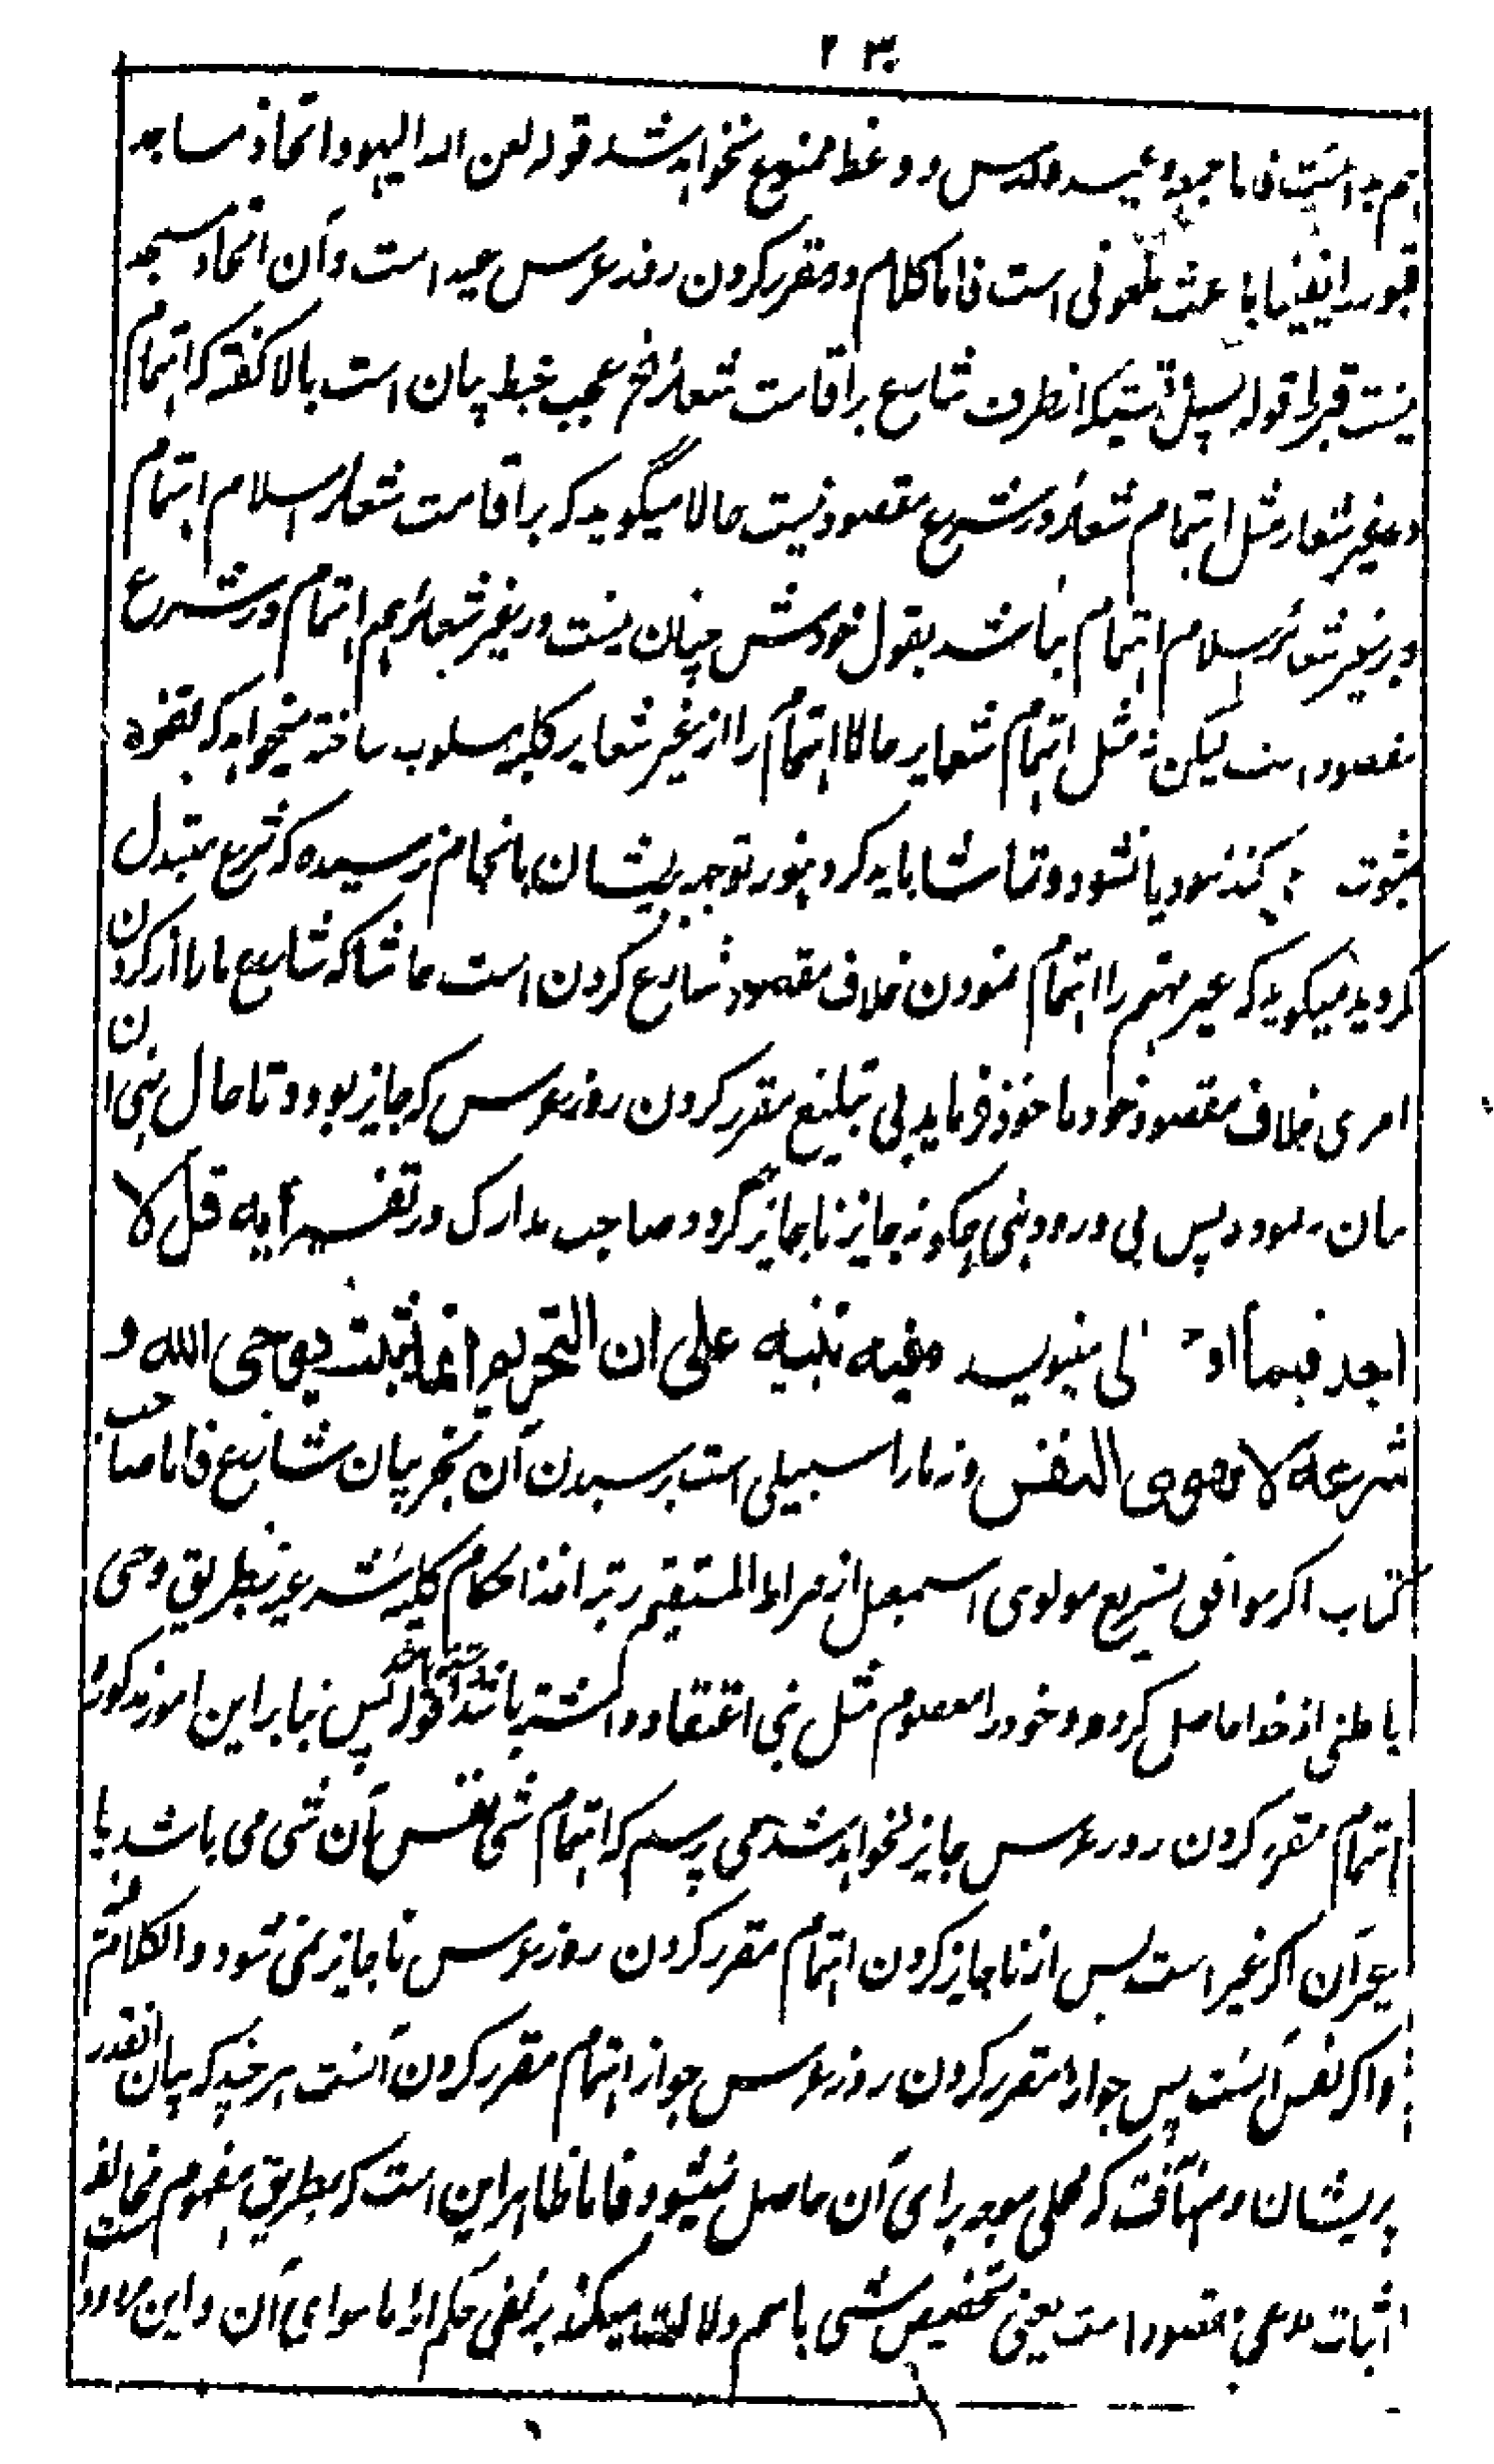 ۲۳
هم بدانست فاما جمعه و عید و مدرس و وعظ ممنوع نخواهد شد قوله لعن الله الیهود اتخاذ مساجد
قبور انبیا باعث ملعونی است فاما کلام در مقرر کردن روز عرس عید است و آن اتخاذ مسجد
نیست قبر را قوله که از طرف شارع بر اقامت شعائر الخ عجیب خبط بیان است بالا گفته که اهتمام
در غیر شعائر مثل اهتمام شعائر در شرع مقصود نیست حالا میگوید که بر اقامت شعائر اسلام اهتمام
و در غیر شعائر اسلام اهتمام نباشد بقول خودش چنان نیست در غیر شعائر هم اهتمام در شرع
مقصود است لیکن نه مثل اهتمام شعایر حالا اهتمام را از غیر شعایر کلیه مسلوب ساخته میخواهد که بقعره
ثبوت کند شود یا نشود و تماشا باید کرد هنوز توجیه ایشان بانجام نرسیده که شرع مبتدل
گردید میگوید که غیر مهتم را اهتمام نمودن خلاف مقصود شارع کردن است حاشا که شارع ما را از کردن
امری خلاف مقصود خود ماخوذ فرماید بی تبلیغ مقرر کردن روز عرس که جایز بود و تا حال نهی آن
پس بی ورود نهی چگونه جایز ناجایز گردد صاحب مدارک در تفسیر آیه قل لا
اجد فیما اوحی الی مینویسد وفیه تنبیه علی ان التحریم انما یثبت بوحی الله و
شرعه لا بهوی النفس و نه ما را سبیلی است برسیدن آن بجز بیان شارع فاما صاحب
کتاب اگر موافق تشریع مولوی اسمعیل از صراط المستقیم رتبه اخذ احکام کلیه شرعیه بطریق وحی
باطنی از خدا حاصل کرده و خود را معصوم مثل نبی اعتقاد داشته باشد قوله پس بنا بر این امور مذکوره
اهتمام مقرر کردن روز عرس جایز نخواهد شد می پرسم که اهتمام شی نفس آن شی می باشد یا
غیر آن اگر غیر است پس از ناجایز کردن اهتمام مقرر کردن روز عرس ناجایز نمی شود و الکلام فیه
و اگر نفس آنست پس جواز مقرر کردن روز عرس جواز اهتمام مقرر کردن آنست هر چند که بیان آنقدر
پریشان و متهافت که محلی موجه برای آن حاصل نمیشود فاما ظاهر این است که بطریق مفهوم مخالف است
اثبات مدعی مقصود است یعنی تخصیص شی باسم دلالت میکند بر نفی حکم از ما سوای آن و این مردود